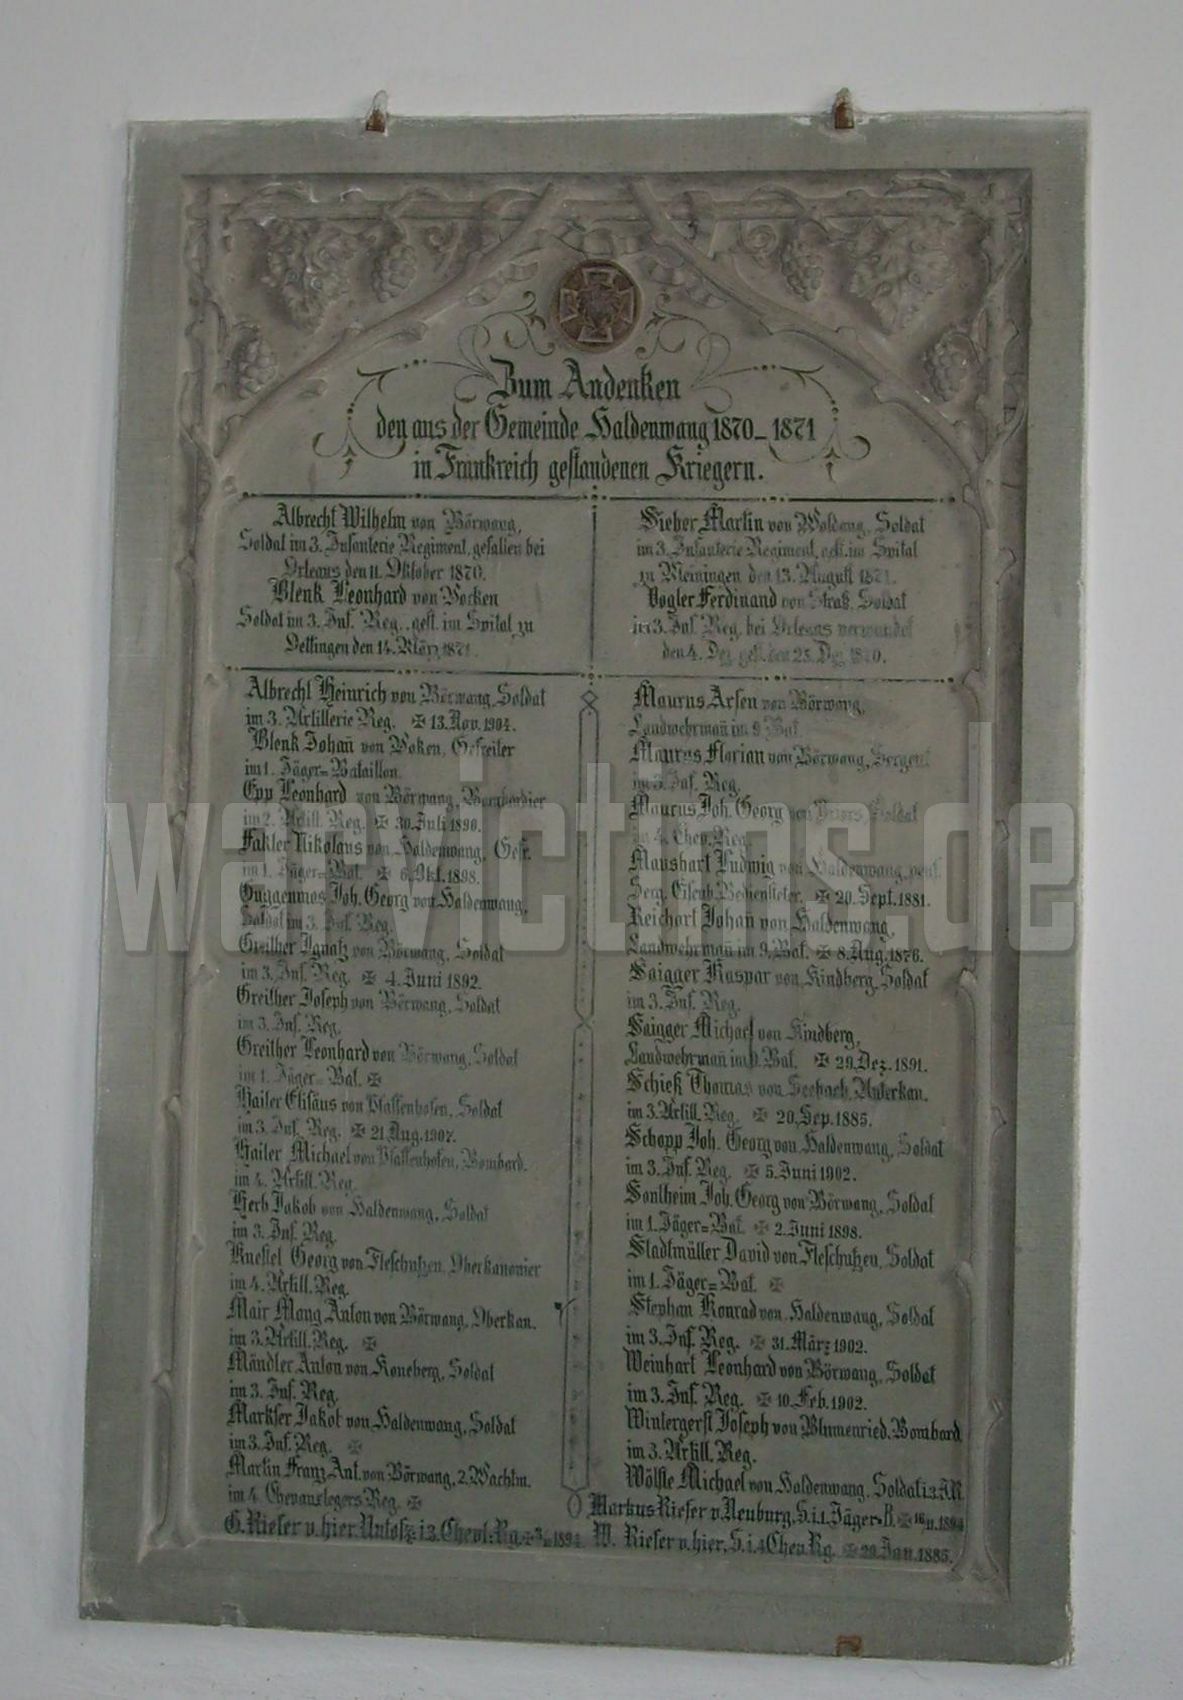 Zum Andenken
den aus der Gemeinde Haldenwang 1870-1871
in Frankreich gestandenen Kriegern.
Albrecht Wilhelm von Börwang,
Soldat im 3. Infanterie Regiment, gefallen bei
Orleans den 11. Oktober 1870.
Blenk Leonhard von Vocken
Soldat im 3. Inf. Reg., gest. im Spital zu
Dettingen den 14. März 1871.
Sieber Martin von Soldat
im 3. Infanterie Regiment, gest. im Spital
zu Meiningen den 13. August 1871.
Vogler Ferdinand von Straß, Soldat
im 3. Inf. Reg. bei Orleans verwundet
den 4. Dez. gest. den 25. Dez. 1870.
Albrecht Heinrich von Börwang, Soldat
im 3. Artillerie Reg. ✠ 13. Nov. 1904.
Blenk Johañ von Voken, Gefreiter
im 1. Jäger=Bataillon.
Epp Leonhard von Börwang, Bombardier
im 2. Artill. Reg. ✠ 30. Juli 1890.
Fakler Nikolaus von Haldenwang, Gefr.
im 1. Jäger=Bat. ✠ 6. Okt. 1898.
Guggenmos Joh. Georg von Haldenwang,
Soldat im 3. Inf. Reg.
Greither Ignatz von Börwang, Soldat
im 3. Inf. Reg. ✠ 4. Juni 1892.
Greither Joseph von Börwang, Soldat
im 3. Inf. Reg.
Greither Leonhard von Börwang, Soldat
im 1. Jäger=Bat. ✠
Hailer Elisäus von Pfaffenhofen, Soldat
im 3. Inf. Reg. ✠ 21. Aug. 1907.
Hailer Michael von Pfaffenhofen, Bombard.
im 4. Artill. Reg.
Herb Jakob von Haldenwang, Soldat
im 3. Inf. Reg.
Knestel Georg von Fleschutzen, Oberkanonier
im 4. Artill. Reg.
Mair Mang Anton von Börwang, Oberkan.
im 3. Artill. Reg. ✠
Mändler Anton von Koneberg, Soldat
im 3. Inf. Reg.
Markser Jakob von Haldenwang, Soldat
im 3. Inf. Reg. ✠
Martin Franz Ant. von Börwang, 2. Wachtm.
im 4. Chevauxlegers Reg. ✠
G. Rieser v. hier, i. 3. Chevl. Rg. ✠ 1894.
Maurus Arsen von Börwang,
Landwehrmañ im 9. Bat.
Maurus Florian von Börwang, Sergent
im 3. Inf. Reg.
Maurus Joh. Georg von Soldat
im 4. Chev. Reg.
Maushart Ludwig von Haldenwang, pens.
Serg. Eisenb. Bediensteter. ✠ 20. Sept. 1881.
Reichart Johañ von Haldenwang,
Landwehrmañ im 9. Bat. ✠ 8. Aug. 1876.
Saigger Kaspar von Kindberg, Soldat
im 3. Inf. Reg.
Saigger Michael von Kindberg,
Landwehrmañ im 9. Bat. ✠ 29. Dez. 1891.
Schieß Thomas von Seebach, Unterkan.
im 3. Artill. Reg. ✠ 20. Sep. 1885.
Schopp Joh. Georg von Haldenwang, Soldat
im 3. Inf. Reg. ✠ 5. Juni 1902.
Sontheim Joh. Georg von Börwang, Soldat
im 1. Jäger=Bat. ✠ 2. Juni 1898.
Stadtmüller David von Fleschutzen, Soldat
im 1. Jäger=Bat. ✠
Stephan Konrad von Haldenwang, Soldat
im 3. Inf. Reg. ✠ 31. März 1902.
Weinhart Leonhard von Börwang, Soldat
im 3. Inf. Reg. ✠ 10. Feb. 1902.
Wintergerst Joseph von Blumenried, Bombard.
im 3. Artill. Reg.
Wölfle Michael von Haldenwang, Soldat i. 3. A.R.
Markus Rieser v. Neuburg, S. i. 1. Jäger=B. ✠ 16/11. 1894
W. Rieser v. hier, S. i. 4 Chev. Rg. ✠ 29. Jan. 1885.
www.victims.de